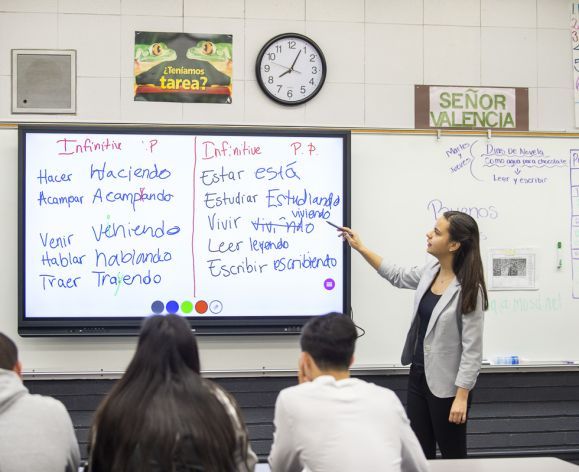 ¿Teníamos
tarea?
SEÑOR
VALENCIA
Infinitive P.P. Infinitive P. P.
Hacer Haciendo
Acampar Acampando
Venir Vehiendo
Hablar hablando
Traer Trayendo
Estar está
Estudiar Estudiando
viviendo
Vivir
Leer leyendo
Escribir escribiendo
Martes
y
Jueves
Diario De Novela
Como agua para chocolate
Leer y escribir
Buenos